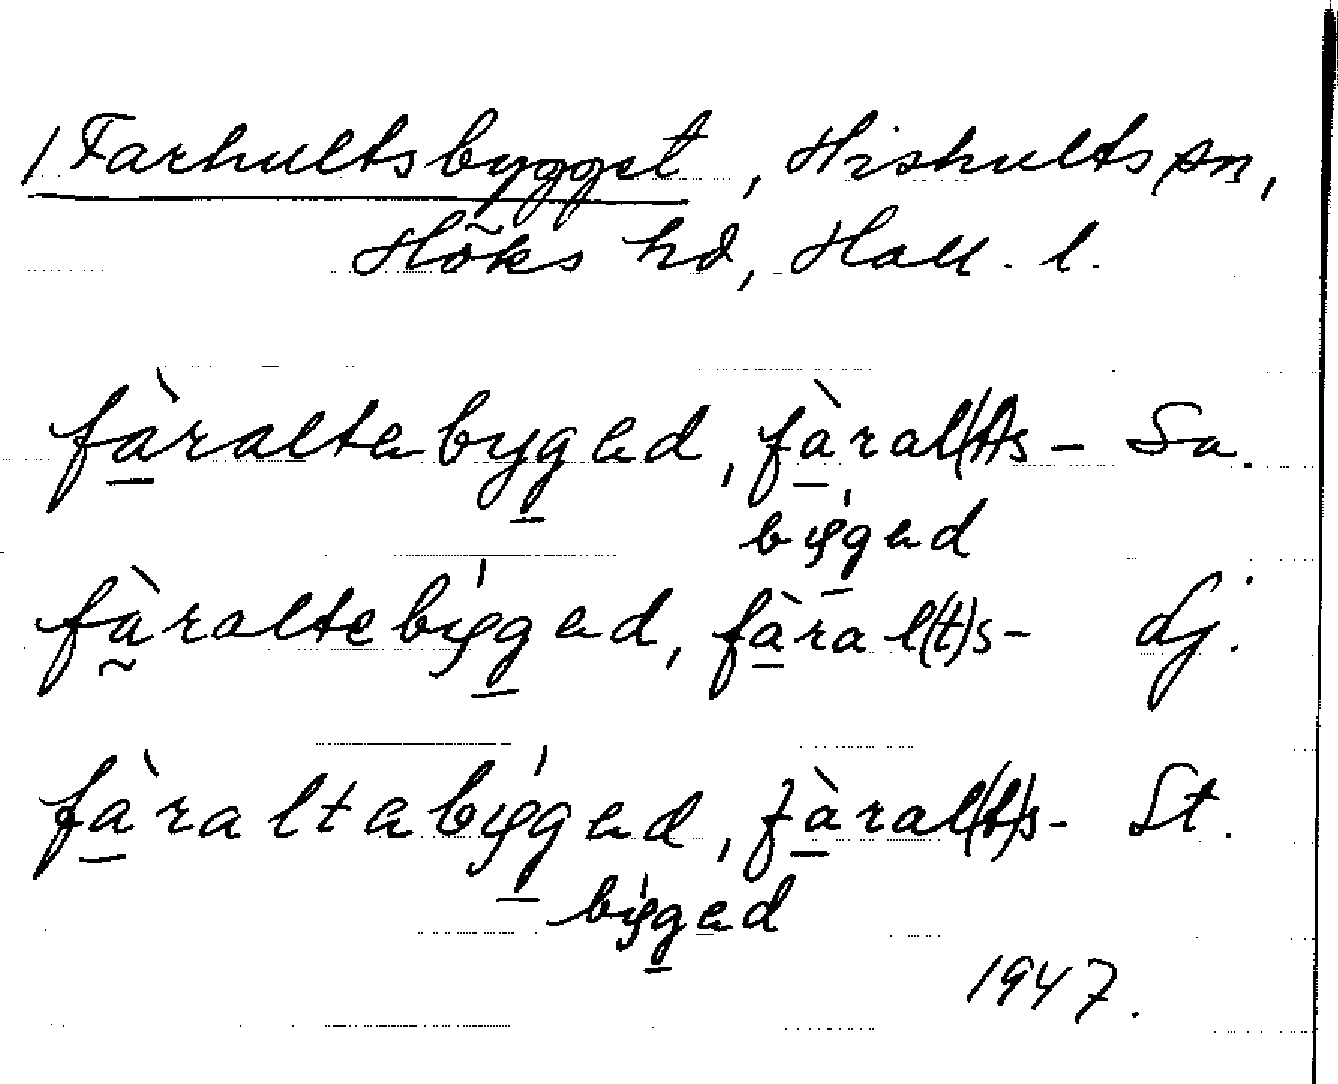 / Farhultsbygget, Hishults sn,
Höks hd, Hall. l.
fàraltabygad, fàral(t)s- Sa.
bygad
fàraltebygad, fàral(t)s- dj.
fàraltabygad, fàral(t)s- St.
bygad
1947.